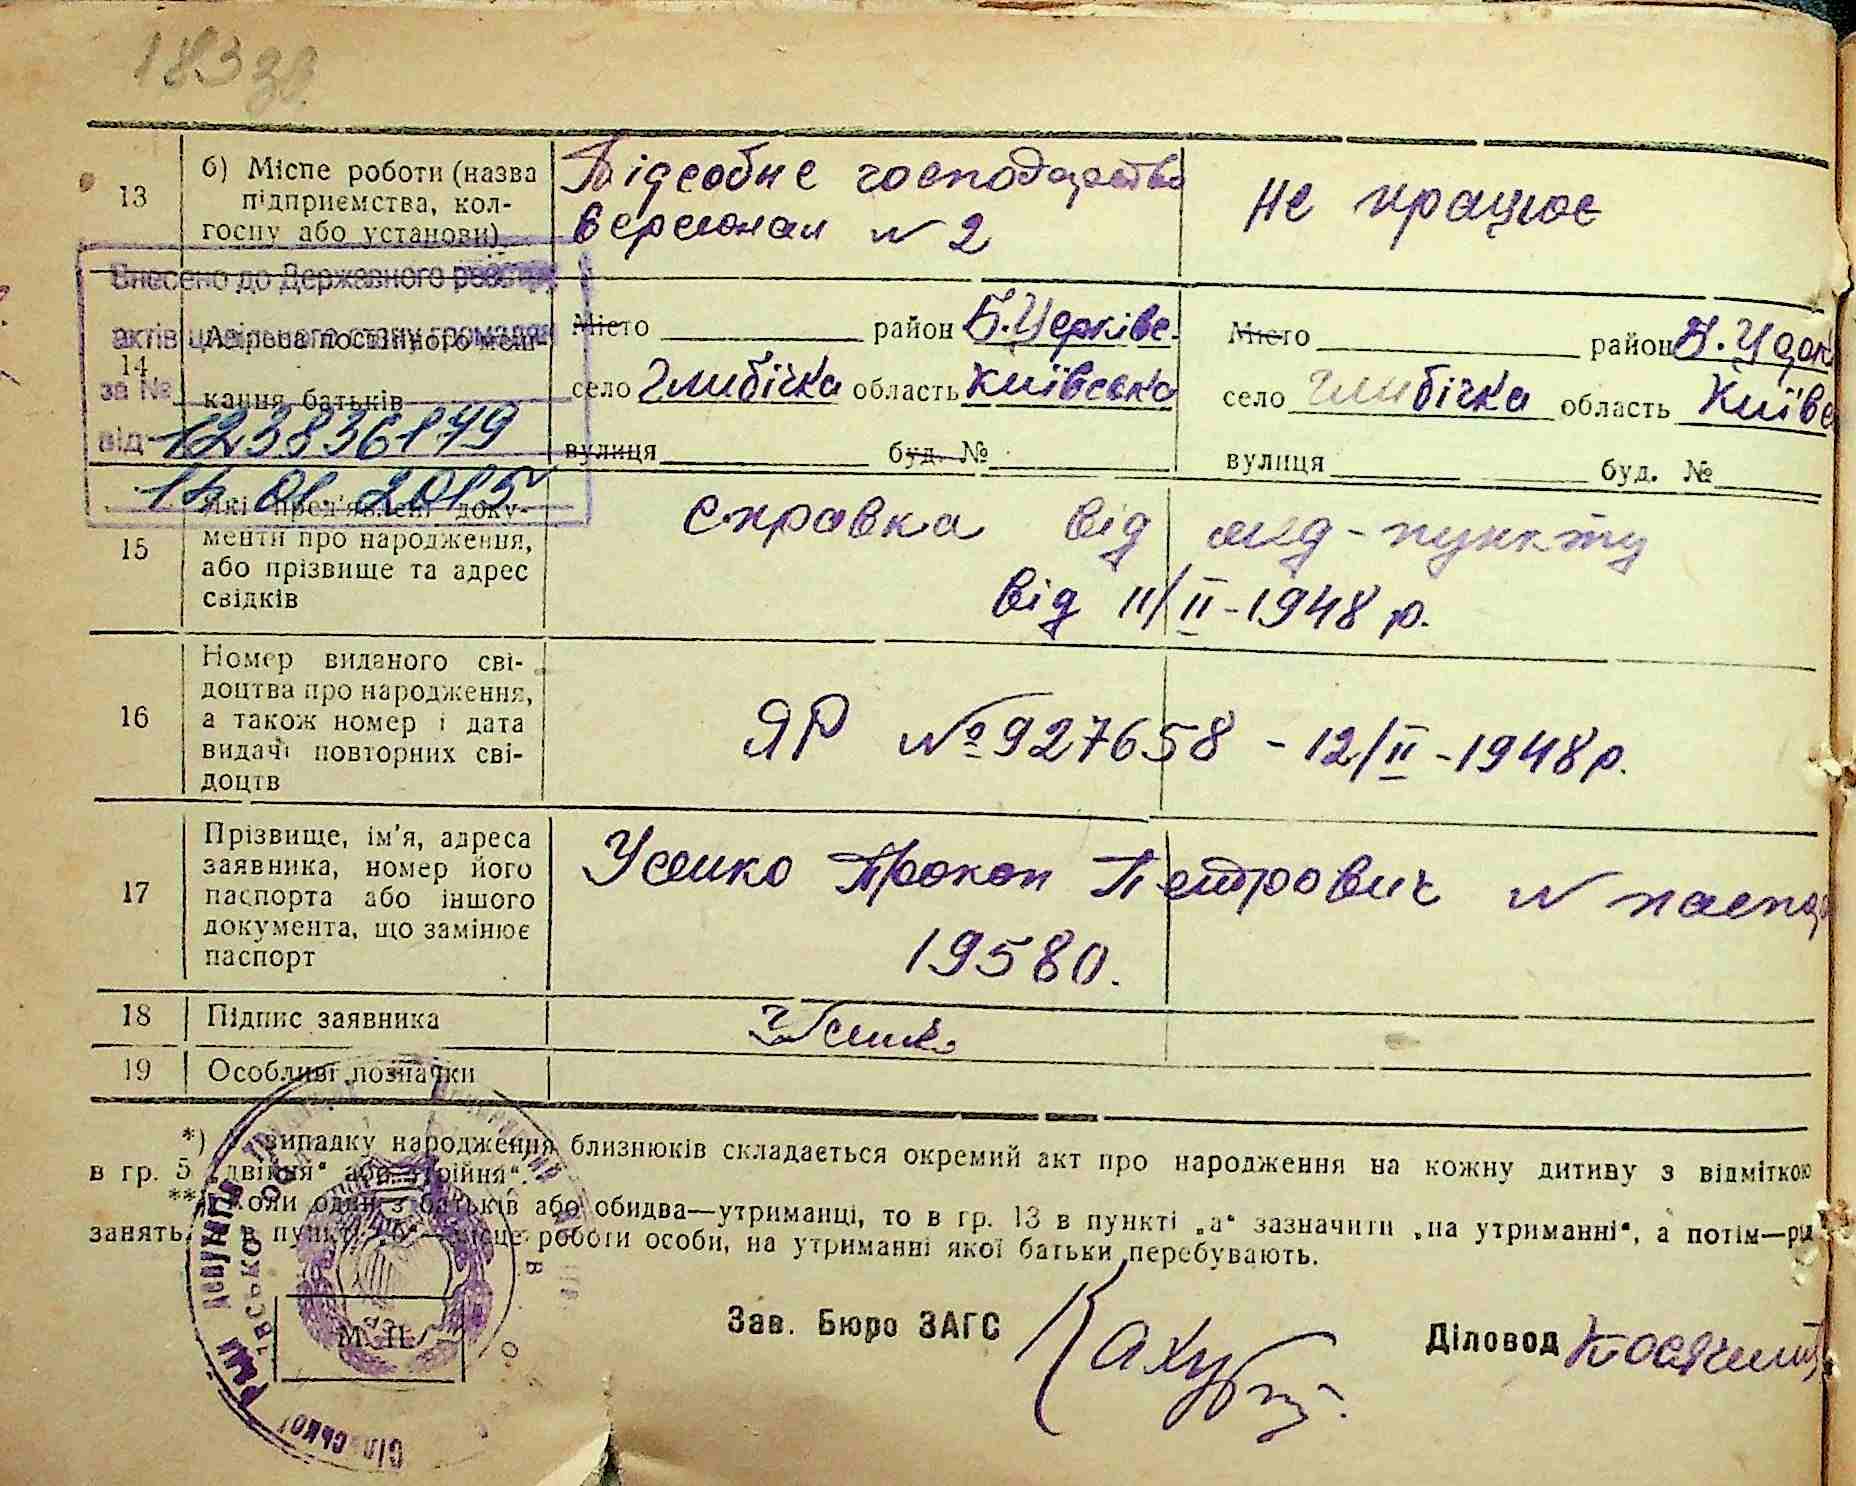 183 зв.
13
б) Місце роботи (назва
підприємства, кол-
госпу або установи)
Підсобне господарство
не працює
№ 2
Внесено до Державного реєстру
актів цивільного стану громадян
за №
123836149
від
14.01.2015
14
Адреса постійного меш-
кання батьків
Місто район Б.Церківс.
село Глибічка область Київська
вулиця буд. №
Місто район Б.Церк
село Глибічка область Київс
вулиця буд. №
15
Які пред'явлені доку-
менти про народження,
або прізвище та адрес
свідків
справка від мед-пункту
від 11/II-1948 р.
16
Номер виданого сві-
доцтва про народження,
а також номер і дата
видачі повторних сві-
доцтв
ЯР № 927658 - 12/II-1948 р.
17
Прізвище, ім'я, адреса
заявника, номер його
паспорта або іншого
документа, що замінює
паспорт
Усенко Прокоп Петрович № паспор
19580.
18
Підпис заявника
19
Особливі позначки
*) У випадку народження близнюків складається окремий акт про народження на кожну дитину з відміткою
в гр. 5 „двійня“ або „трійня“.
**) Коли один з батьків або обидва—утриманці, то в гр. 13 в пункті „а“ зазначити „на утриманні“, а потім—рід
занять, а в пункті „б“—місце роботи особи, на утриманні якої батьки перебувають.
Зав. Бюро ЗАГС
Діловод
М. П.
Сільської Ради депутатів